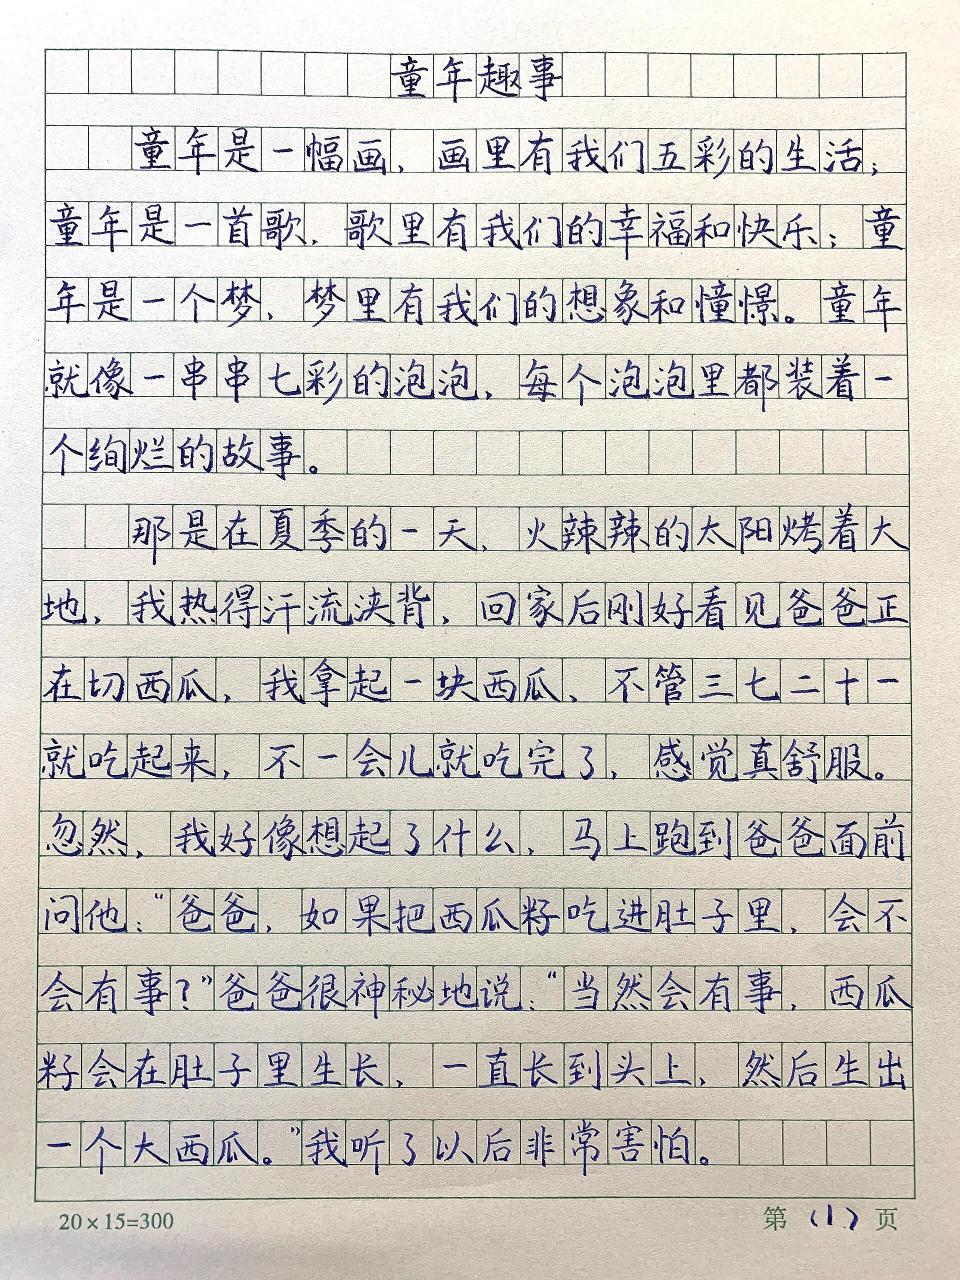 童年趣事
童年是一幅画，画里有我们五彩的生活；
童年是一首歌，歌里有我们的幸福和快乐；童
年是一个梦，梦里有我们的想象和憧憬。童年
就像一串串七彩的泡泡，每个泡泡里都装着一
个绚烂的故事。
那是在夏季的一天，火辣辣的太阳烤着大
地，我热得汗流浃背，回家后刚好看见爸爸正
在切西瓜，我拿起一块西瓜，不管三七二十一
就吃起来，不一会儿就吃完了，感觉真舒服。
忽然，我好像想起了什么，马上跑到爸爸面前
问他：“爸爸，如果把西瓜籽吃进肚子里，会不
会有事？”爸爸很神秘地说：“当然会有事，西瓜
籽会在肚子里生长，一直长到头上，然后生出
一个大西瓜。”我听了以后非常害怕。
20×15=300 第（1）页